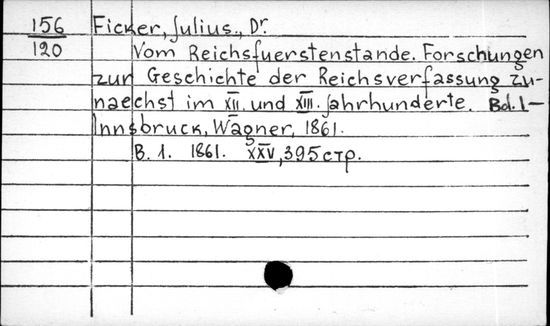 156 Ficker, Julius., Dr.
120 Vom Reichsfuerstenstande. Forschungen
zur Geschichte der Reichsverfassung zu-
naechst im XII. und XIII. Jahrhunderte. Bd. 1-
Innsbruck, Wagner, 1861.
B. 1. 1861. XXV, 395 стр.